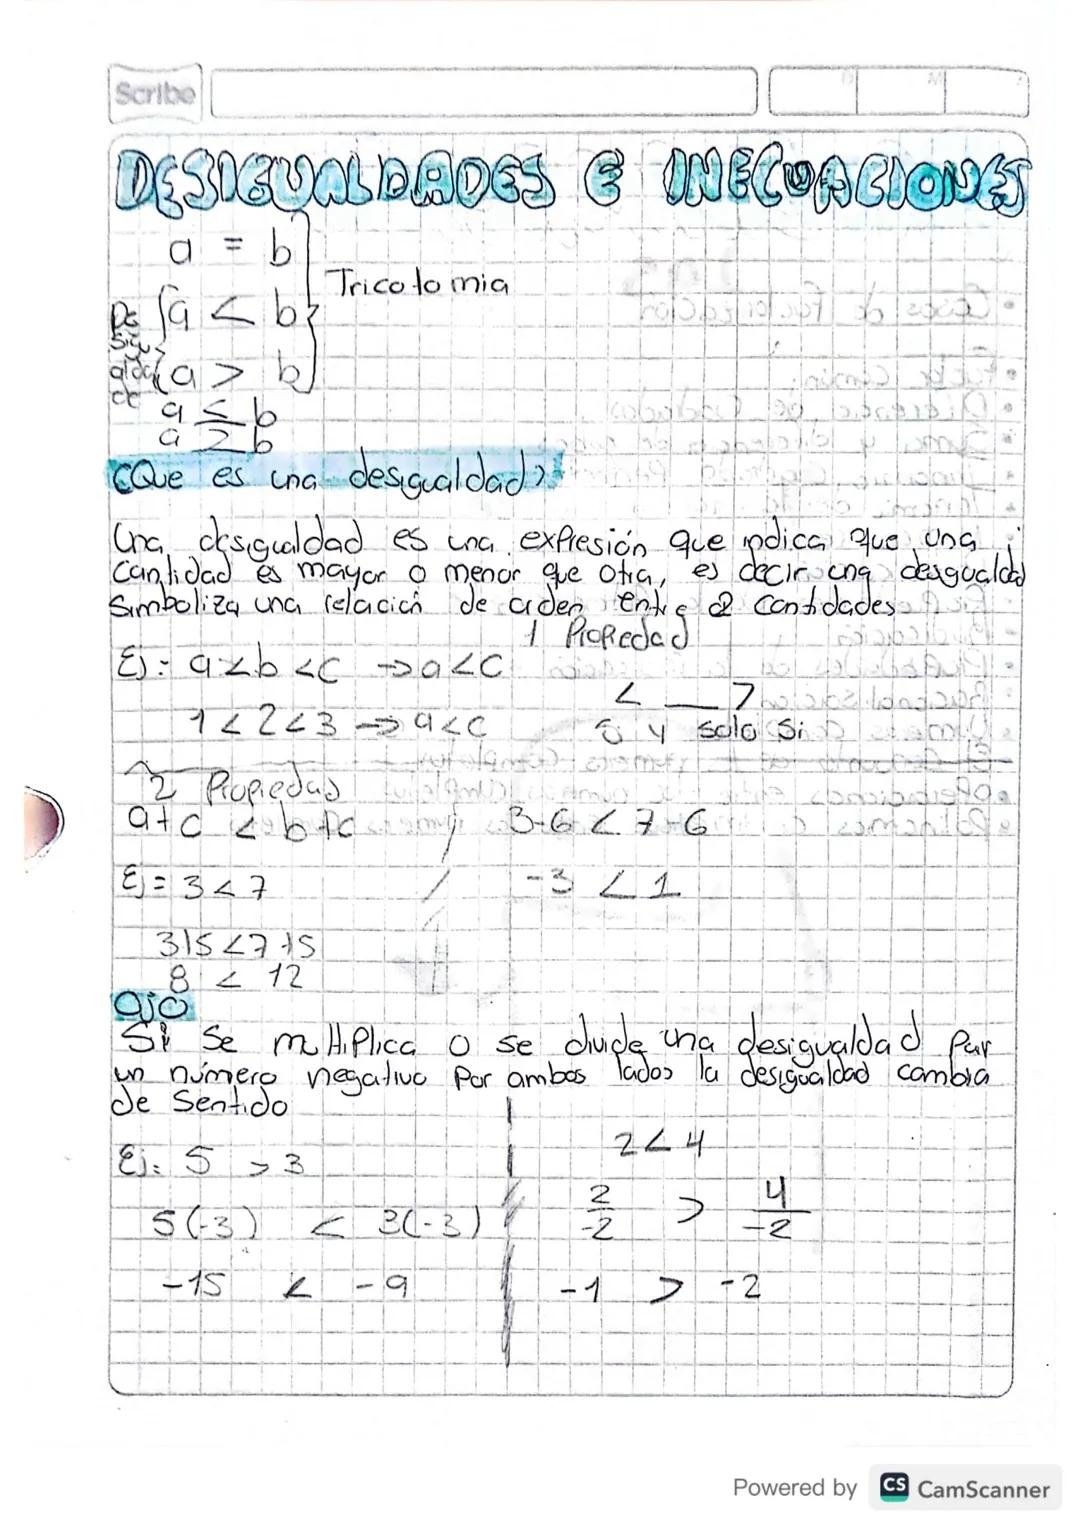 Scribe
DESIGUALDADES E INECUACIONES
a = b
Tricotomia
a < b
De
sigu
aldad
de
a > b
a ≤ b
a ≥ b
¿Que es una desigualdad?
Una desigualdad es una expresión que indica que una
cantidad es mayor o menor que otra, es decir una desgualdad
Simboliza una relación de orden entre 2 cantidades
1 Propiedad
Ej: a<b<c →a<c
< __ >
1<2<3 → a<c
5 4 solo si
2 Propiedad
a+c < b+c
3-6 < 7-6
Ej = 3<7
-3 < 1
3+5<7+5
8 < 12
Ojo
Si Se multiplica o se divide una desigualdad Par
un número negativo Por ambos lados la desigualdad cambia
de Sentido
2<4
Ej: 5 > 3
2/-2 > 4/-2
5(-3) < 3(-3)
-15 < -9
-1 > -2
Powered by CS CamScanner